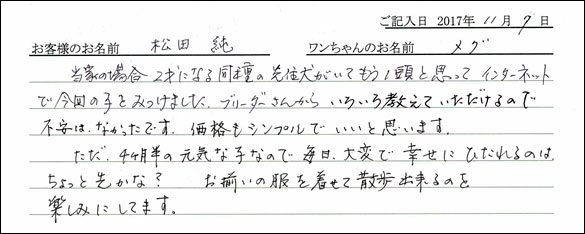 ご記入日 2017年 11月 9日
お客様のお名前 松田 純 ワンちゃんのお名前 メグ
当家の場合 2才になる同種の先住犬がいてもう1頭と思って インターネット
で今回の子をみつけました、ブリーダーさんから いろいろ教えていただけるので
不安は、なかったです。価格もシンプルで いいと思います。
ただ、4ヶ月半の元気な子なので毎日、大変で 幸せに ひたれるのは、
ちょっと先かな? お揃いの服を着せて散歩出来るのを
楽しみにしてます。